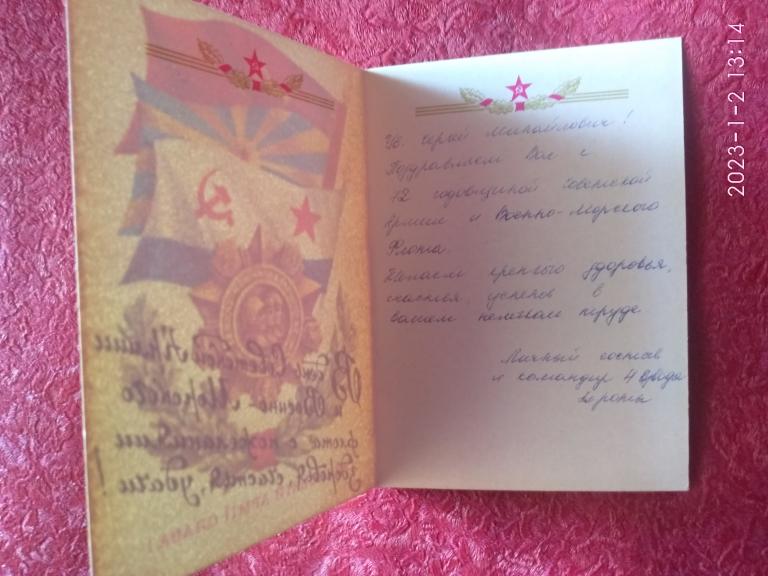 Ув. Сергей Михайлович!
Поздравляем Вас с
72 годовщиной Советской
Армии и Военно-Морского
Флота.
Желаем крепкого здоровья,
счастья, успехов в
вашем нелегком труде
Личный состав
и командир 4 взвода
роты
В день Советской Армии
и Военно-Морского
флота с пожеланиями
здоровья, счастья, удачи!
АРМІЇ СЛАВА!
2023-1-2 13:14